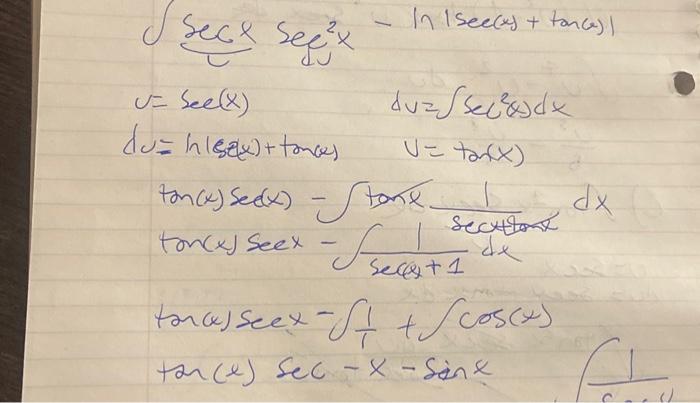 ∫ sec x sec²x - ln|sec(x) + tan(x)|
u dv
u = sec(x) dv = ∫ sec²(x) dx
du = ln|sec(x) + tan(x) v = tan(x)
tan(x) sec(x) - ∫ tan x · 1/(sec x + tan x) dx
tan(x) sec x - ∫ 1/(sec(x) + 1) dx
tan(x) sec x - ∫ 1/1 + ∫ cos(x)
tan(x) sec - x - sin x ∫ 1